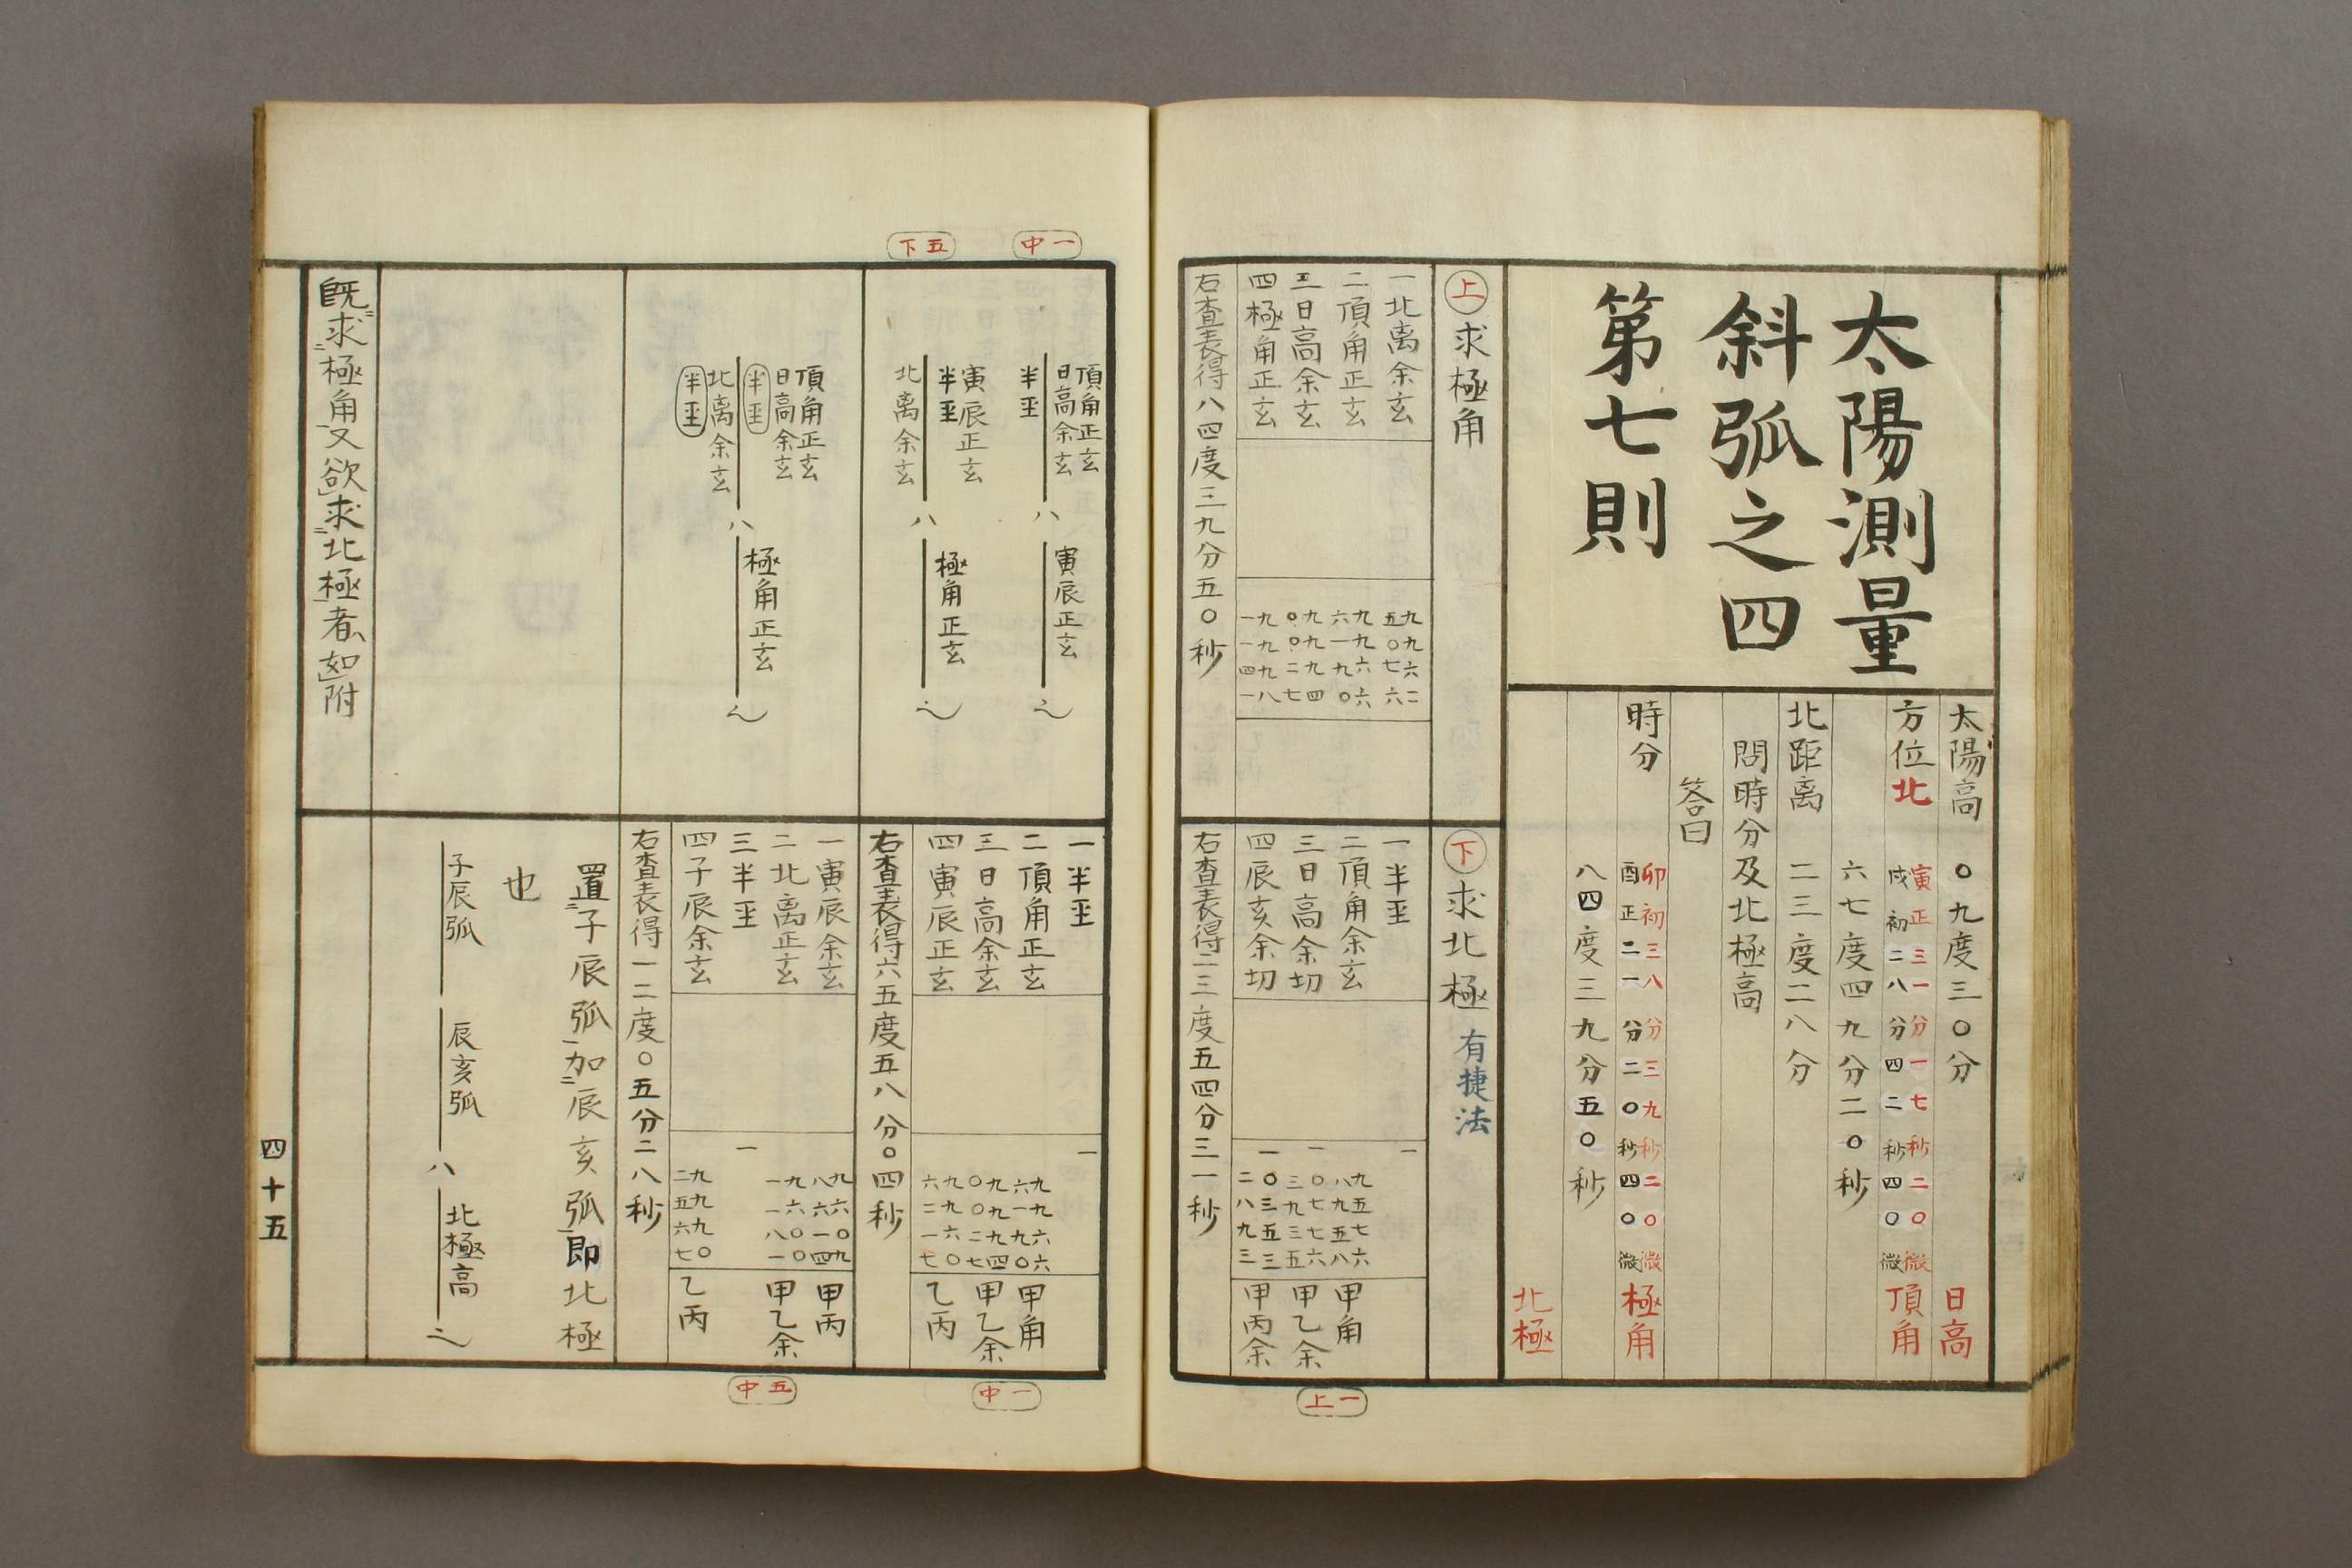 太陽測量
斜弧之四
第七則
太陽高 〇九度三〇分 日高
方位北 寅正三一分一七秒二〇微 戌初二八分四二秒四〇微 頂角
六七度四九分二〇秒
北距离 二三度二八分
問時分及北極高
答曰
時分 卯初三八分三九秒二〇微 酉正二一分二〇秒四〇微 極角
八四度三九分五〇秒
北極
上 求極角
一北离余玄 九九六二五〇七六
二頂角正玄 九九六六六一九〇
三日高余玄 九九九四〇〇二七
四極角正玄 九九九八一一四一
右查表得八四度三九分五〇秒
下 求北極 有捷法
一半至 一
二頂角余玄 九五七六八九五八 甲角
三日高余切 一〇七七六三九三五 甲乙余
四辰亥余切 一〇三五三二八九三 甲丙余
右查表得二三度五四分三一秒
一上
一中
五下
頂角正玄
日高余玄
半至
八
寅辰正玄
之
寅辰正玄
半至
北离余玄
八
極角正玄
之
頂角正玄
日高余玄
半至
北离余玄
半至
八
極角正玄
之
一半至 一
二頂角正玄 九九六六六一九〇 甲角
三日高余玄 九九九四〇〇二七 甲乙余
四寅辰正玄 九九六〇六二一七 乙丙
右查表得六五度五八分〇四秒
一寅辰余玄 九六〇九八六一四 甲丙
二北离正玄 九六〇〇一一八一 甲乙余
三半至 一
四子辰余玄 九九九〇二五六七 乙丙
右查表得一二度〇五分二八秒
置子辰弧加辰亥弧即北極
也
子辰弧
辰亥弧
八
北極高
之
既求極角又欲求北極者如附
四十五
一中
五中